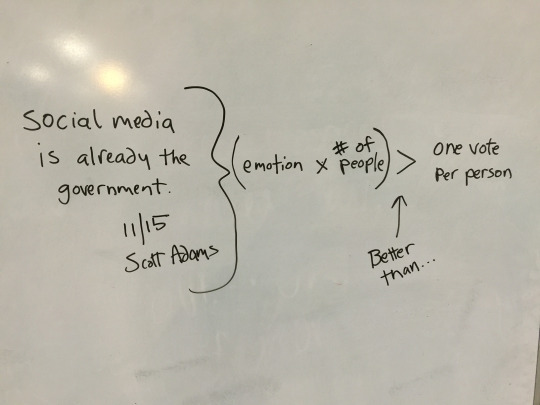 Social media
is already the
government.
11/15
Scott Adams
(emotion x # of people) >
one vote
Per person
Better
than...